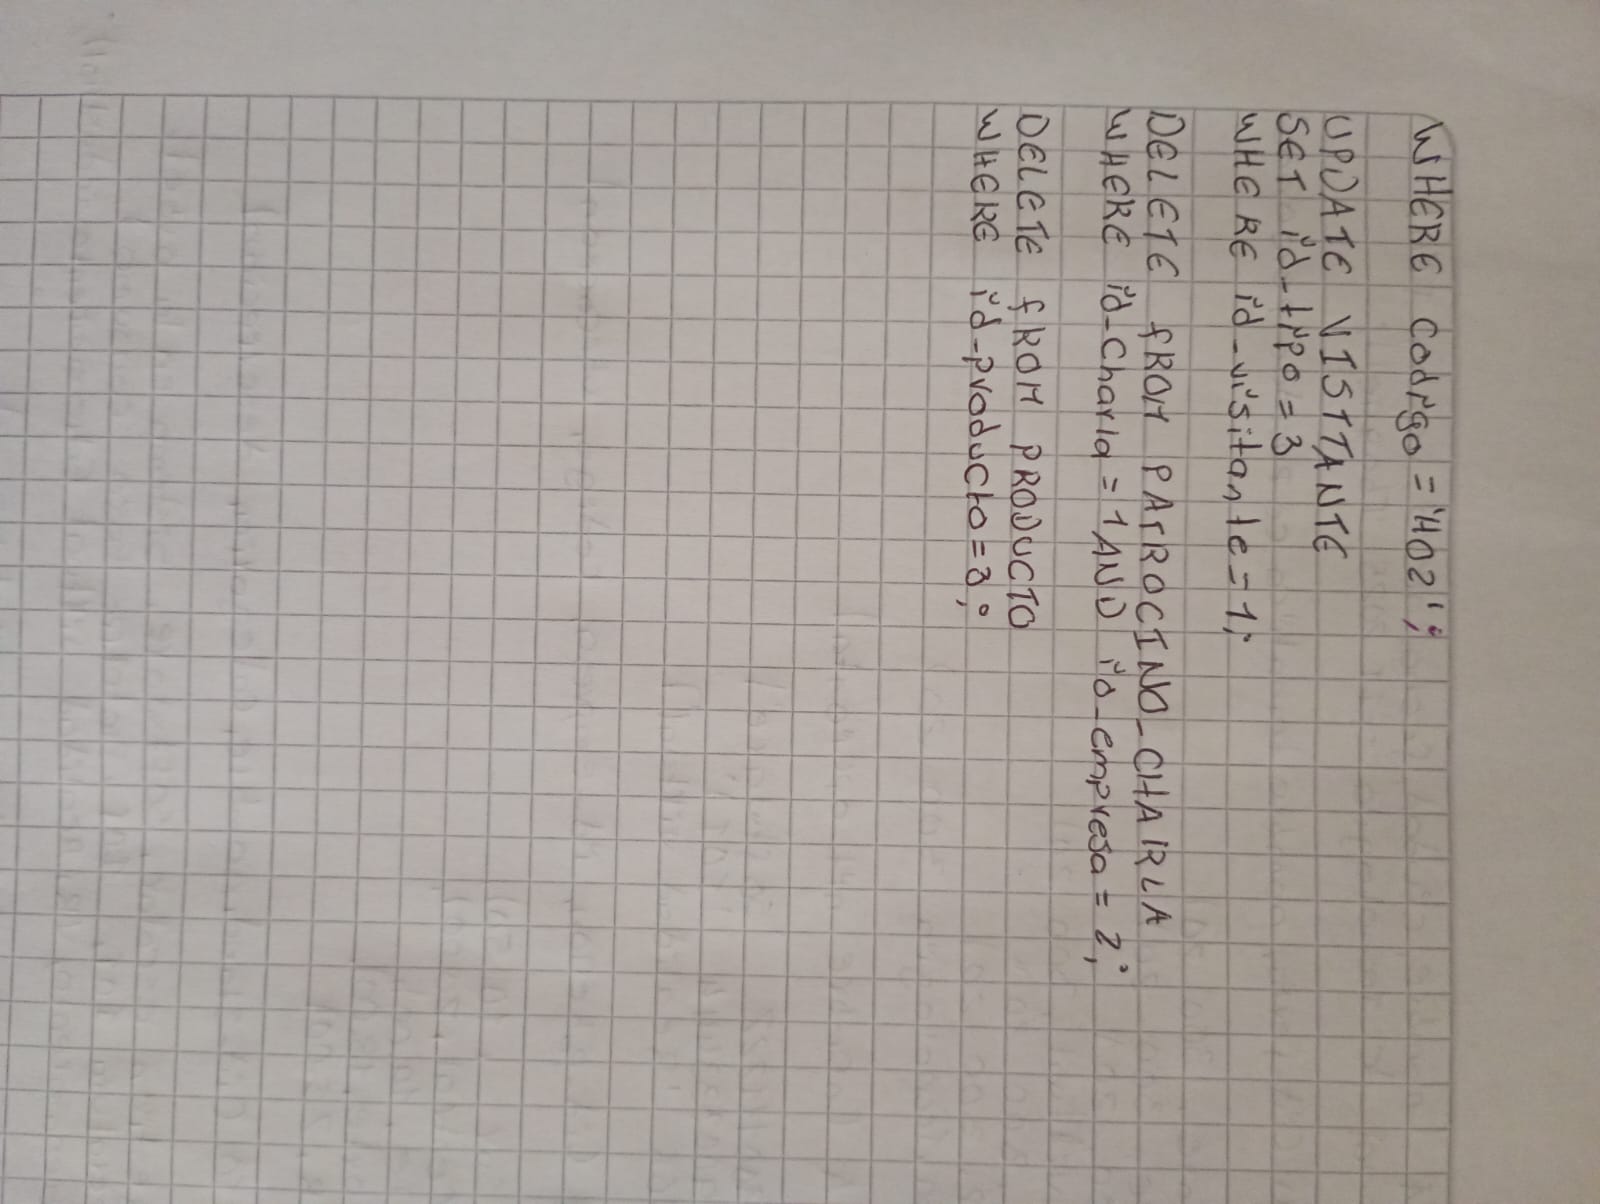 WHERE codigo = '402';
UPDATE VISITANTE
SET id_tipo = 3
WHERE id_visitante = 1;
DELETE FROM PATROCINO_CHARLA
WHERE id_charla = 1 AND id_empresa = 2;
DELETE FROM PRODUCTO
WHERE id_producto = 3;